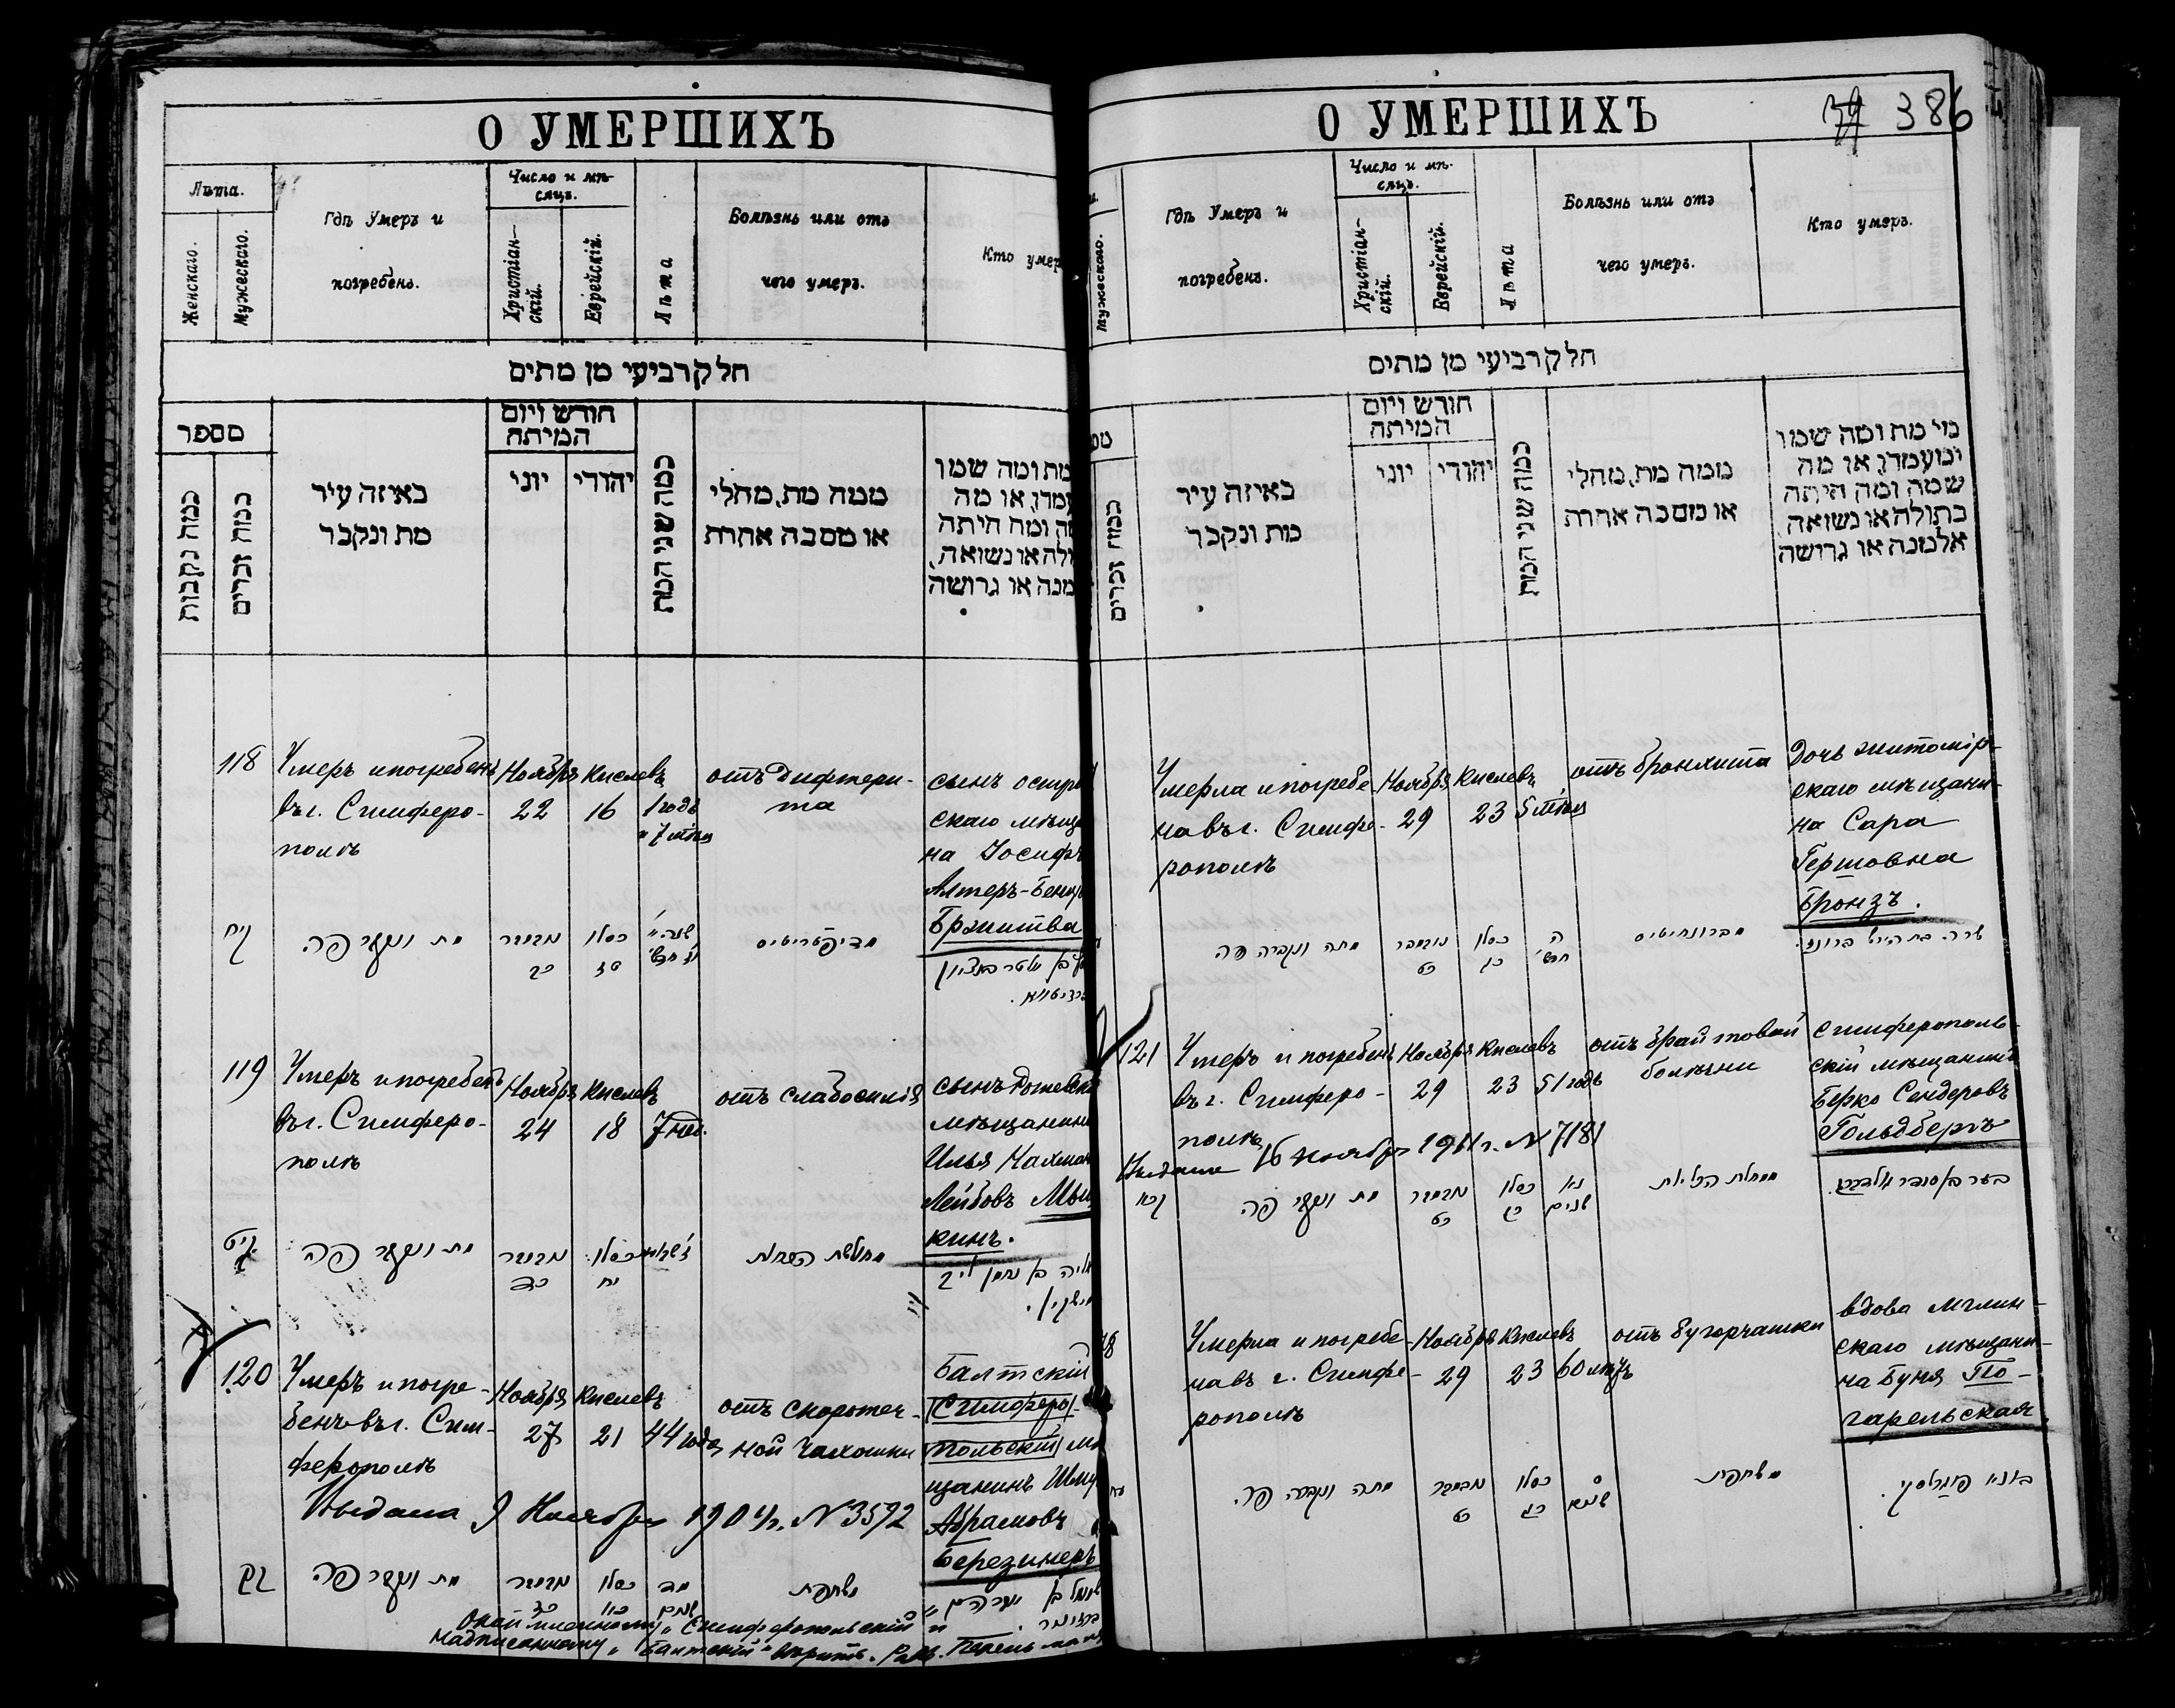 О УМЕРШИХЪ
Лѣта.
Женскаго.
Мужескаго.
Гдѣ Умеръ и
погребенъ.
Число и мѣ-
сяцъ.
Христіан-
скій.
Еврейскій.
Лѣта
Болѣзнь или отъ
чего умеръ.
Кто умер
חלק רביעי מן מתים
מספר
כמה נקבות
כמה זכרים
באיזה עיר
מת ונקבר
חורש ויום
המיתה
יוני
יהודי
כמה שני המת
ממה מת, מחלי
או מסבה אחרת
מת ומה שמו
עמדן, או מה
ומה היתה
ולה או נשואה,
מנה או גרושה
118
Умеръ и погребенъ
въ г. Симферо-
полѣ
Ноября
22
Кислевъ
16
1 годъ
и 7 мѣс
отъ Дифтери-
та
сынъ остр
скаго мѣща
на Іосифъ
Алтеръ-Бенц
Бржитва
קיח
מת ונקבר פה
נובמבר
כב
כסלו
טז
מדיפטריטיס
119
Умеръ и погребенъ
въ г. Симферо-
полѣ
Ноября
24
Кислевъ
18
7 нед.
отъ слабосилія
сынъ
мѣщанина
Илья Нахман
Лейбовъ Мы
кинъ.
קיט
מת ונקבר פה
נובמבר
כד
כסלו
יח
אליה בן נחמן ליב
120
Умеръ и погре-
бенъ въ г. Сим-
ферополѣ
Ноября
27
Кислевъ
21
44 года
отъ скоротеч-
ной чахотки
Балтскій
Симферо-
польскій мѣ
щанинъ Шму
Абрамовъ
Березинеръ
Выдана 9 Ноября 1904 г. N 3592
קכ
מת ונקבר פה
נובמבר
כז
כסלו
כא
מד
שנים
משחפת
שמואל בן אברהם
"Симферопольскій"
Надписанному "Балтскій" вѣрить. Рав.
О УМЕРШИХЪ
386
Мужескаго.
Гдѣ Умеръ и
погребенъ.
Число и мѣ-
сяцъ.
Христіан-
скій.
Еврейскій.
Лѣта
Болѣзнь или отъ
чего умеръ.
Кто умеръ.
חלק רביעי מן מתים
מס
כמה זכרים
באיזה עיר
מת ונקבר
חורש ויום
המיתה
יוני
יהודי
כמה שני המת
ממה מת, מחלי
או מסבה אחרת
מי מת ומה שמו
ומעמדן, או מה
שמה ומה היתה
בתולה או נשואה,
אלמנה או גרושה
Умерла и погребе-
на въ г. Симфе-
рополѣ
Ноября
29
Кислевъ
23
5 мѣс
отъ бронхита
Дочь житомір-
скаго мѣщани-
на Сара
Гершовна
Бронзъ.
מתה ונקברה פה
נובמבר
כט
כסלו
כג
ה
חדש'
מברונחיטיס
שרה בת הירש ברונז.
121
Умеръ и погребенъ
въ г. Симферо-
полѣ
Ноября
29
Кислевъ
23
51 годъ
отъ Брайтовой
болѣзни
Симферополь-
скій мѣщанинъ
Берко Сендеровъ
Гольдбергъ
Выдана 16 ноября 1911 г. N 7181
קכא
מת ונקבר פה
נובמבר
כט
כסלו
כג
נא
שנים
ממחלת הכליות
בער בן סנדר גולדברג.
Умерла и погребе-
на въ г. Симфе-
рополѣ
Ноября
29
Кислевъ
23
60 лѣтъ
отъ бугорчатки
вдова мглин-
скаго мѣщани-
на Буня По-
гарельская
מתה ונקברה פה.
נובמבר
כט
כסלו
כג
ס
שנים
משחפת
בוניא פוגרלסקי.